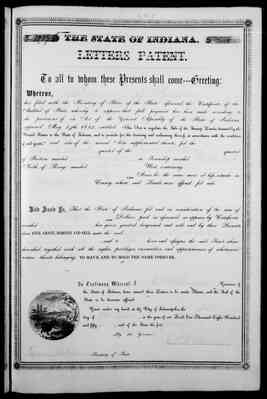 THE STATE OF INDIANA.
LETTERS PATENT.
To all to whom these Presents shall come---Greeting:
Whereas,
has filed with the Secretary of State of the State aforesaid the Certificate of the
Auditor of State, whereby it appears that full payment has been made according to
the provisions of an Act of the General Assembly of the State of Indiana
approved May
"An Act to regulate the Sale of the Swamp Lands donated by the
United States to the State of Indiana, and to provide for the draining and reclaiming thereof, in accordance with the condition
of said grant," and also of the several Acts supplemental thereto, for the
quarter of the quarter
of Section numbered in Township numbered
North of Range numbered West containing
Acres be the same more or less situate in
County where said Lands were offered for sale.
Now Know Ye, That the State of Indiana for and in consideration of the sum of
Dollars paid as aforesaid as appears by Certificate
numbered has given granted bargained and sold and by these Presents
does GIVE GRANT BARGAIN AND SELL unto the said
and to heirs and assigns the said Tract above
described together with all the rights privileges immunities and appurtenances of whatsoever
nature thereto belonging TO HAVE AND TO HOLD THE SAME FOREVER.
In Testimony Whereof I, Governor of
the State of Indiana have caused these Letters to be made Patent and the Seal of the
State to be hereunto affixed.
Given under my hand at the City of Indianapolis the
day of in the year of our Lord One Thousand Eight Hundred
and fifty and of the State the
By the Governor
Secretary of State